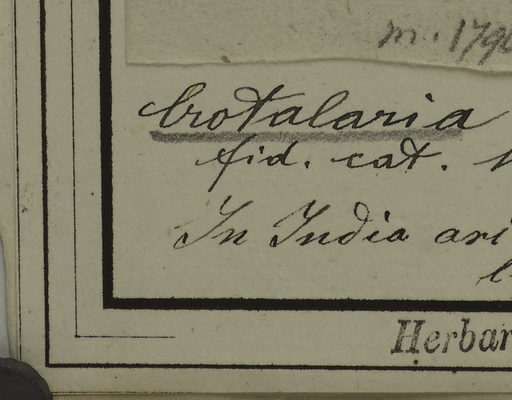 m. 179
Crotalaria
fid. cat.
In India ori
Herbar